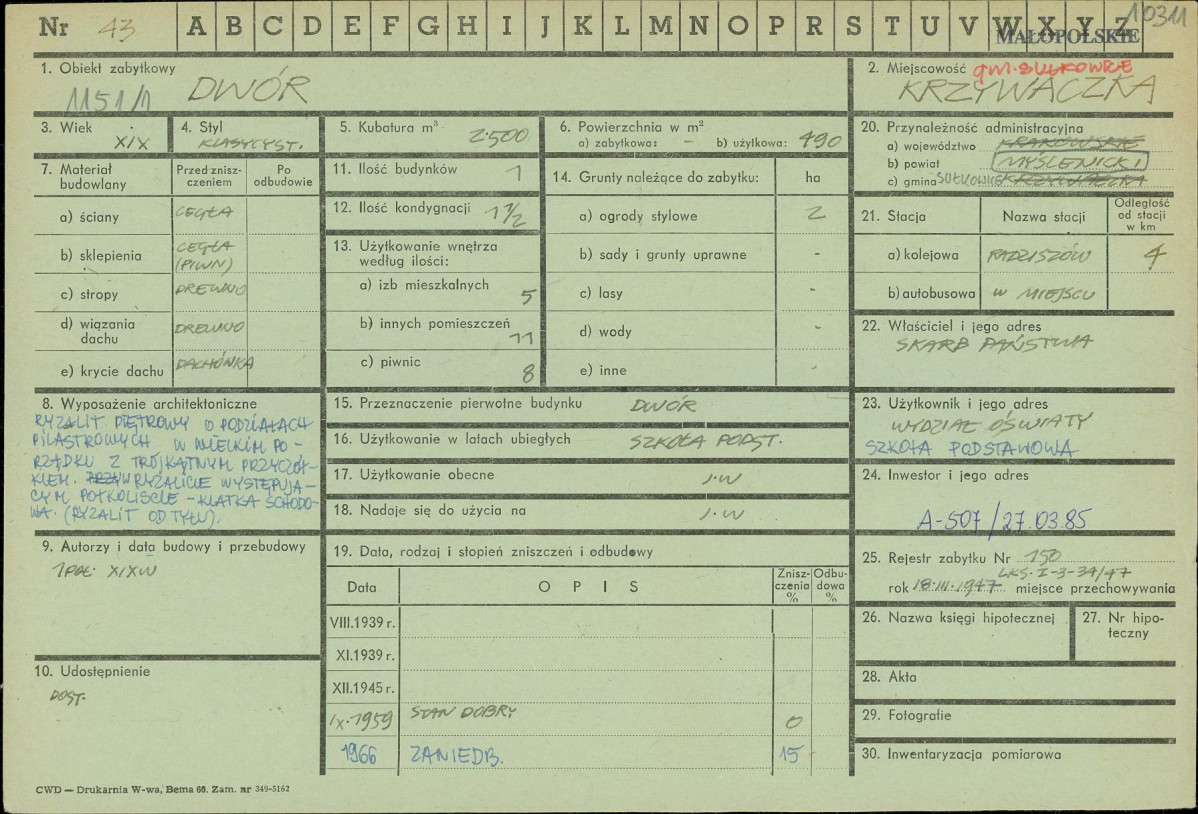 Nr 43 A B C D E F G H I J K L M N O P R S T U V W X Y Z 10311
MAŁOPOLSKIE
1. Obiekt zabytkowy
1151/1 DWÓR
2. Miejscowość gm. SUŁKOWICE
KRZYWACZKA
3. Wiek
XIX
4. Styl
KLASYCYST.
5. Kubatura m³
2.500
6. Powierzchnia w m²
a) zabytkowa: - b) użytkowa: 490
20. Przynależność administracyjna
a) województwo KRAKOWSKIE
b) powiat MYŚLENICKI
c) gmina SUŁKOWICE KRZYWACZKA
7. Materiał budowlany
Przed zniszczeniem
Po odbudowie
a) ściany CEGŁA
b) sklepienia CEGŁA (PIWN)
c) stropy DREWNO
d) wiązania dachu DREWNO
e) krycie dachu DACHÓWKA
11. Ilość budynków 1
12. Ilość kondygnacji 1 1/2
13. Użytkowanie wnętrza według ilości:
a) izb mieszkalnych 5
b) innych pomieszczeń 11
c) piwnic 8
14. Grunty należące do zabytku: ha
a) ogrody stylowe 2
b) sady i grunty uprawne -
c) lasy -
d) wody -
e) inne -
21. Stacja Nazwa stacji Odległość od stacji w km
a) kolejowa RADZISZÓW 4
b) autobusowa W MIEJSCU
22. Właściciel i jego adres
SKARB PAŃSTWA
8. Wyposażenie architektoniczne
RYZALIT PIĘTROWY O PODZIAŁACH
PILASTROWYCH W WIELKIM PO-
RZĄDKU Z TRÓJKĄTNYM PRZYCZÓŁ-
KIEM. PRZY W RYZALICIE WYSTĘPUJĄ-
CYM PÓŁKOLIŚCIE - KLATKA SCHODO-
WA. (RYZALIT OD TYŁU).
15. Przeznaczenie pierwotne budynku DWÓR
16. Użytkowanie w latach ubiegłych SZKOŁA PODST.
17. Użytkowanie obecne J.W
18. Nadaje się do użycia na J.W
23. Użytkownik i jego adres
WYDZIAŁ OŚWIATY
SZKOŁA PODSTAWOWA
24. Inwestor i jego adres
A-507/27.03.85
9. Autorzy i data budowy i przebudowy
1 POŁ. XIX W
19. Data, rodzaj i stopień zniszczeń i odbudowy
Data OPIS Zniszczenia % Odbudowa %
VIII.1939 r.
XI.1939 r.
XII.1945 r.
IX.1959 STAN DOBRY 0
1966 ZANIEDB. 15
25. Rejestr zabytku Nr 150
LKS-I-3-34/47
rok 18.III.1947 miejsce przechowywania
26. Nazwa księgi hipotecznej
27. Nr hipoteczny
28. Akta
29. Fotografie
30. Inwentaryzacja pomiarowa
10. Udostępnienie
DOST.
CWD — Drukarnia W-wa, Bema 60. Zam. nr 349-5162